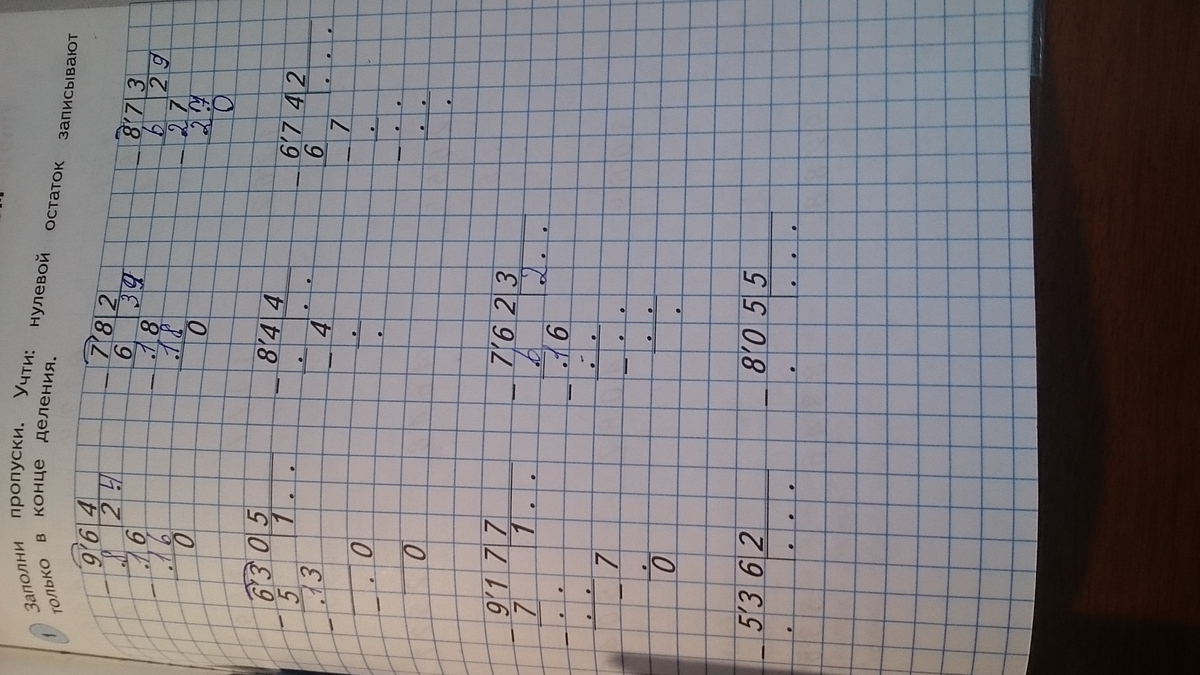 1 Заполни пропуски. Учти: нулевой остаток записывают
только в конце деления.
− 9'6 4
8 2 4
− 1 6
1 6
0
− 7'8 2
6 3 9
− 1 8
1 8
0
− 8'7 3
6 2 9
− 2 7
2 7
0
− 6'3 0 5
5 1 . .
− 1 3
− . 0
0
− 8'4 4
. . .
− 4
.
.
− 6'7 4 2
6 . . .
− 7
.
− . .
. .
.
− 9'1 7 7
7 1 . .
− . .
. .
− 7
.
0
− 7'6 2 3
6 2 . .
− 1 6
. .
− . .
. .
.
− 5'3 6 2
. . . .
− 8'0 5 5
. . . .